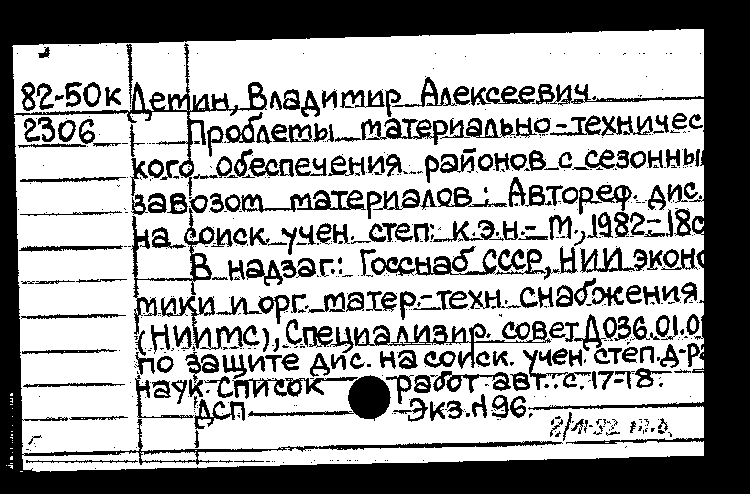 82-50к Детин, Владимир Алексеевич.
2306 Проблемы материально-техничес
кого обеспечения районов с сезонны
завозом материалов: Автореф. дис.
на соиск. учен. степ: к.э.н.- М., 1982-18с
В надзаг.: Госснаб СССР, НИИ эконо
мики и орг. матер.-техн. снабжения
(НИИМС), Специализир. совет Д036.01.01
по защите дис. на соиск. учен. степ. д-ра
наук. Список работ авт.: с. 17-18.
ДСП Экз.N96.